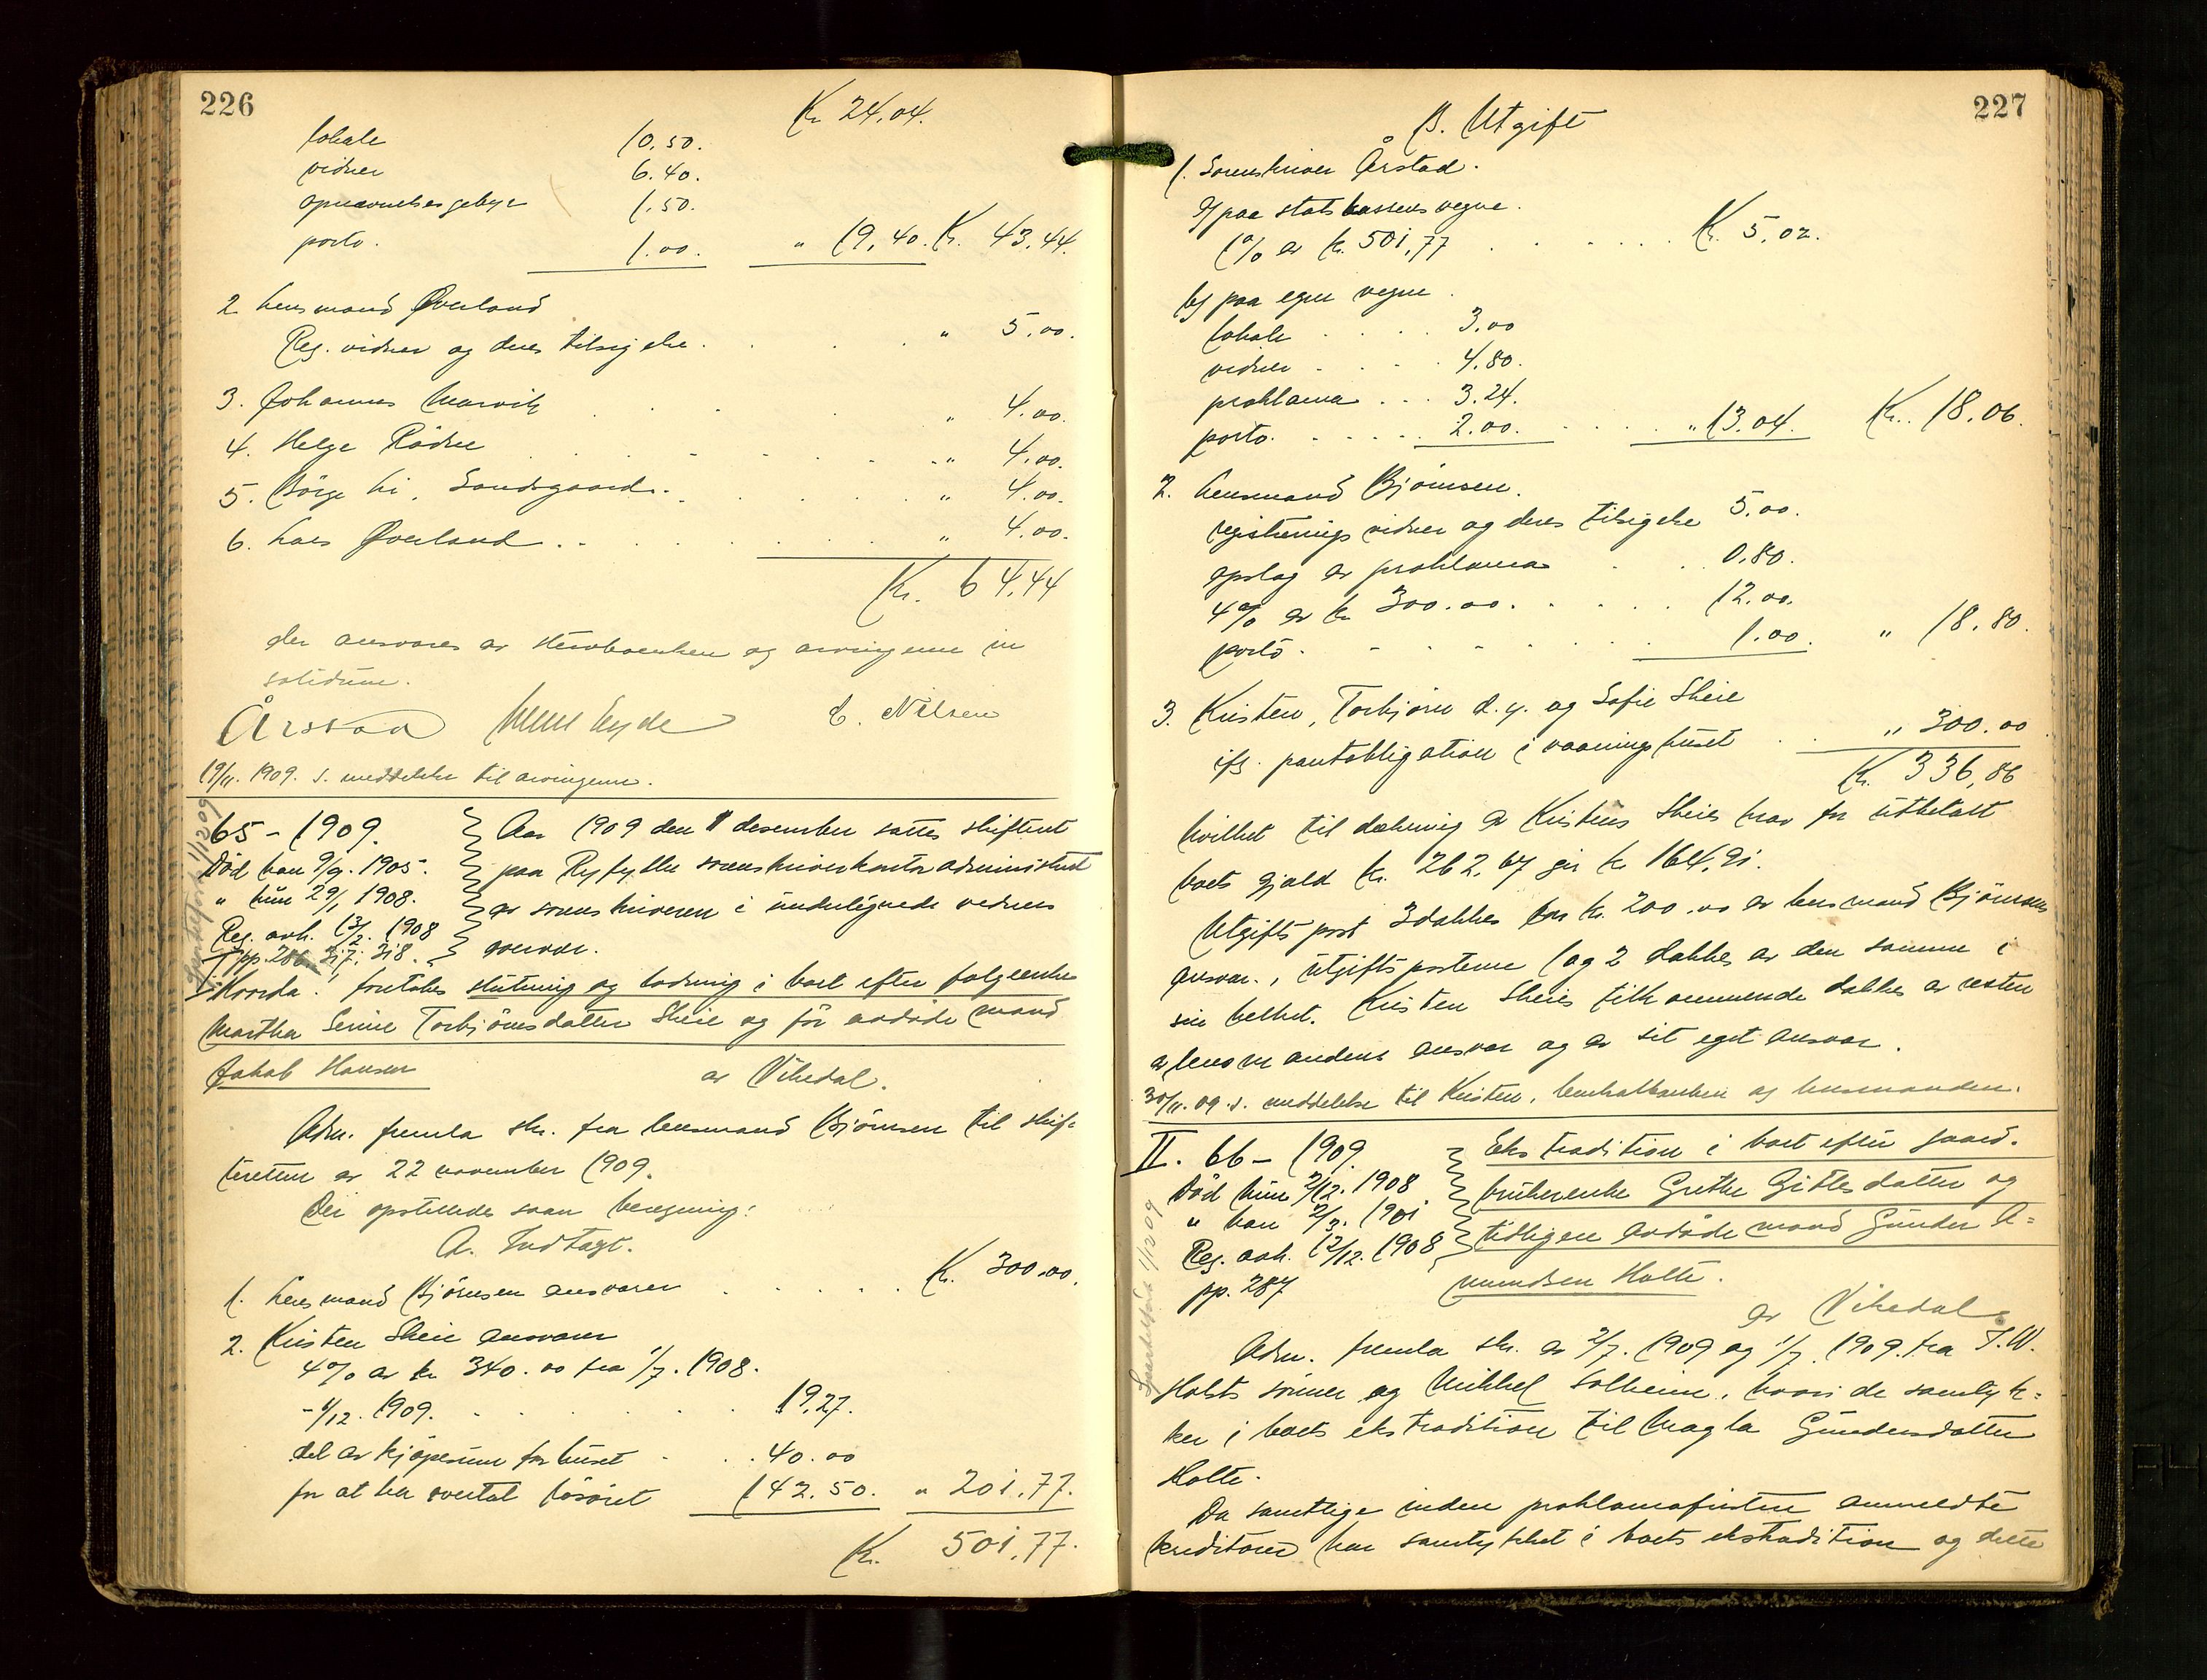 226
Kr. 24.04.
lokale 10.50.
vidner 6.40.
opnævnelsesgebyr 1.50.
porto. 1.00. " 19.40. Kr. 43.44.
2. Lensmand Øverland
Reg. vidner og deres tilsigelse . . . . " 5.00.
3. Johannes Marvik . . . " 4.00.
4. Helge Rødne . . . . . . " 4.00.
5. Børge Sandsgaard . . . . " 4.00.
6. Lars Øverland . . . . . . " 4.00.
Kr. 64.44
der ansvares av sterboenken og arvingerne in
solidum.
Årstad E. Nilsen
19/11. 1909. s. meddelelse til arvingerne.
65 - 1909.
Død han 9/9. 1905.
" hun 29/1 1908.
Reg. avh. 13/2. 1908
pp. 286. 317. 318.
Aar 1909 den 1 desember sattes skifteret
paa Ryfylke sorenskriverkontor administrert
av sorenskriveren i undertegnede vidners
overvær.
Hvorda: foretokes slutning og lodning i boet efter folgeenke
Martha Serine Torbjörnsdatter Skeie og för avdöde mand
Jakob Hansen av Vikedal.
Adm. fremla skr. fra lensmand Bjömsen til skif-
teretten av 22 november 1909.
Der opstilledes saan beregning:
A. Indtægt.
1. Lensmand Bjömsen ansvarer . . . . . Kr. 300.00.
2. Kristen Skeie ansvarer
4% av kr. 340.00 fra 1/7. 1908.
- 1/12. 1909. . . . . . . 19.27.
del av kjöpesum for huset . . . 40.00
for at ha overtat lösöret 142.50. " 201.77.
Kr. 501.77.
227
B. Utgift
1. Sorenskriver Årstad.
a) paa statskassens vegne.
1% av kr. 501,77 . . . . . . Kr. 5.02.
b) paa egne vegne.
lokale . . . . 3.00
vidner . . . . 4.80.
proklama . . . 3.24.
porto. . . . . . 2.00. . . . . " 13.04. Kr. 18.06.
2. Lensmand Bjömsen.
registrerings vidner og deres tilsigelse 5.00.
opslag av proklama . . . 0.80.
4% av kr. 300.00. . . . . . 12.00.
porto. . . . . . . . 1.00. " 18.80.
3. Kristen, Torbjörn d. y. og Sofie Skeie
ifl. pantobligation i vaaningshuset . . " 300.00
Kr. 336,86
hvilket til dækning av Kristens Skeies krav for utbetalt
boets gjæld kr. 262,67 gir kr 164,91.
Utgifts post 3 dækkes for kr. 200.00 av lensmand Bjömsens
ansvar., utgiftsposterne 1 og 2 dækkes av den samme i
sin helhet. Kristen Skeies tilkommende dækkes av resten
av lensmandens ansvar og av sit eget ansvar.
30/11. 09. s. meddelelse til Kristen, Centralbanken og lensmanden.
II. 66 - 1909.
Död hun 2/12. 1908
" han 2/3. 1901
Reg. avh. 12/12. 1908
pp. 287
Ekstradition i boet efter gaard-
brukerenke Grethe Gitlesdatter og
tidligere avdöde mand Gunder A=
mundsen Holte.
av Vikedal.
Adm. fremla skr. av 2/7. 1909 og 1/7. 1909. fra T.W.
Holsts sönner og Mikkel Solheim, hvori de samtyk=
ker i boets ekstradition til Magla Gundersdatter
Holte.
Da samtlige inden proklamafristen anmeldte
kreditorer har samtykket i boets ekstradition og dette